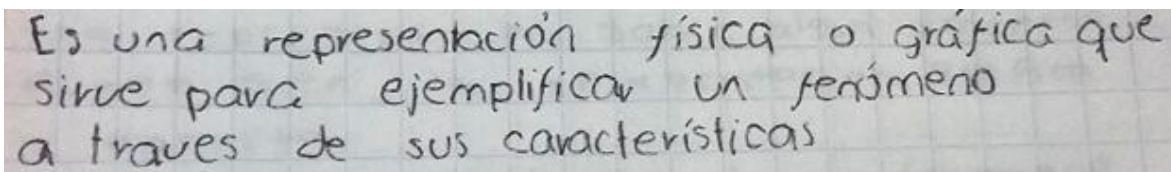 Es una representación física o gráfica que
sirve para ejemplificar un fenómeno
a traves de sus características